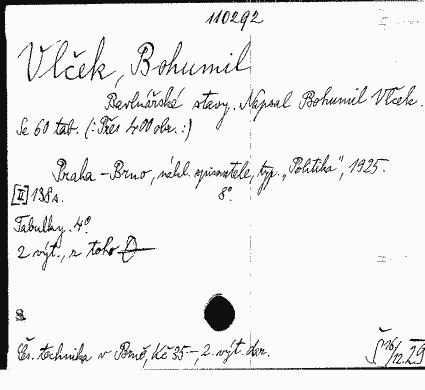 110292
Vlček, Bohumil
Bavlnářské stavy. Napsal Bohumil Vlček.
Se 60 tab. (: Přes 400 obr. :)
Praha - Brno, nákl. spisovatele, typ. „Politika", 1925.
[II] 138 s. 8°.
Tabulky. 4°.
2 výt., z toho
Čs. technika v Brně, Kč 35-, 2. výt. dar.
Š 16/12.29